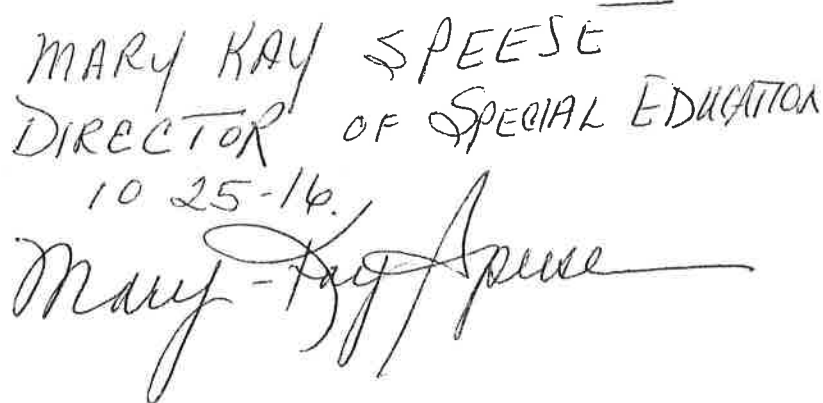 MARY KAY SPEESE
DIRECTOR OF SPECIAL EDUCATION
10 25-16.
Mary-Kay Speese